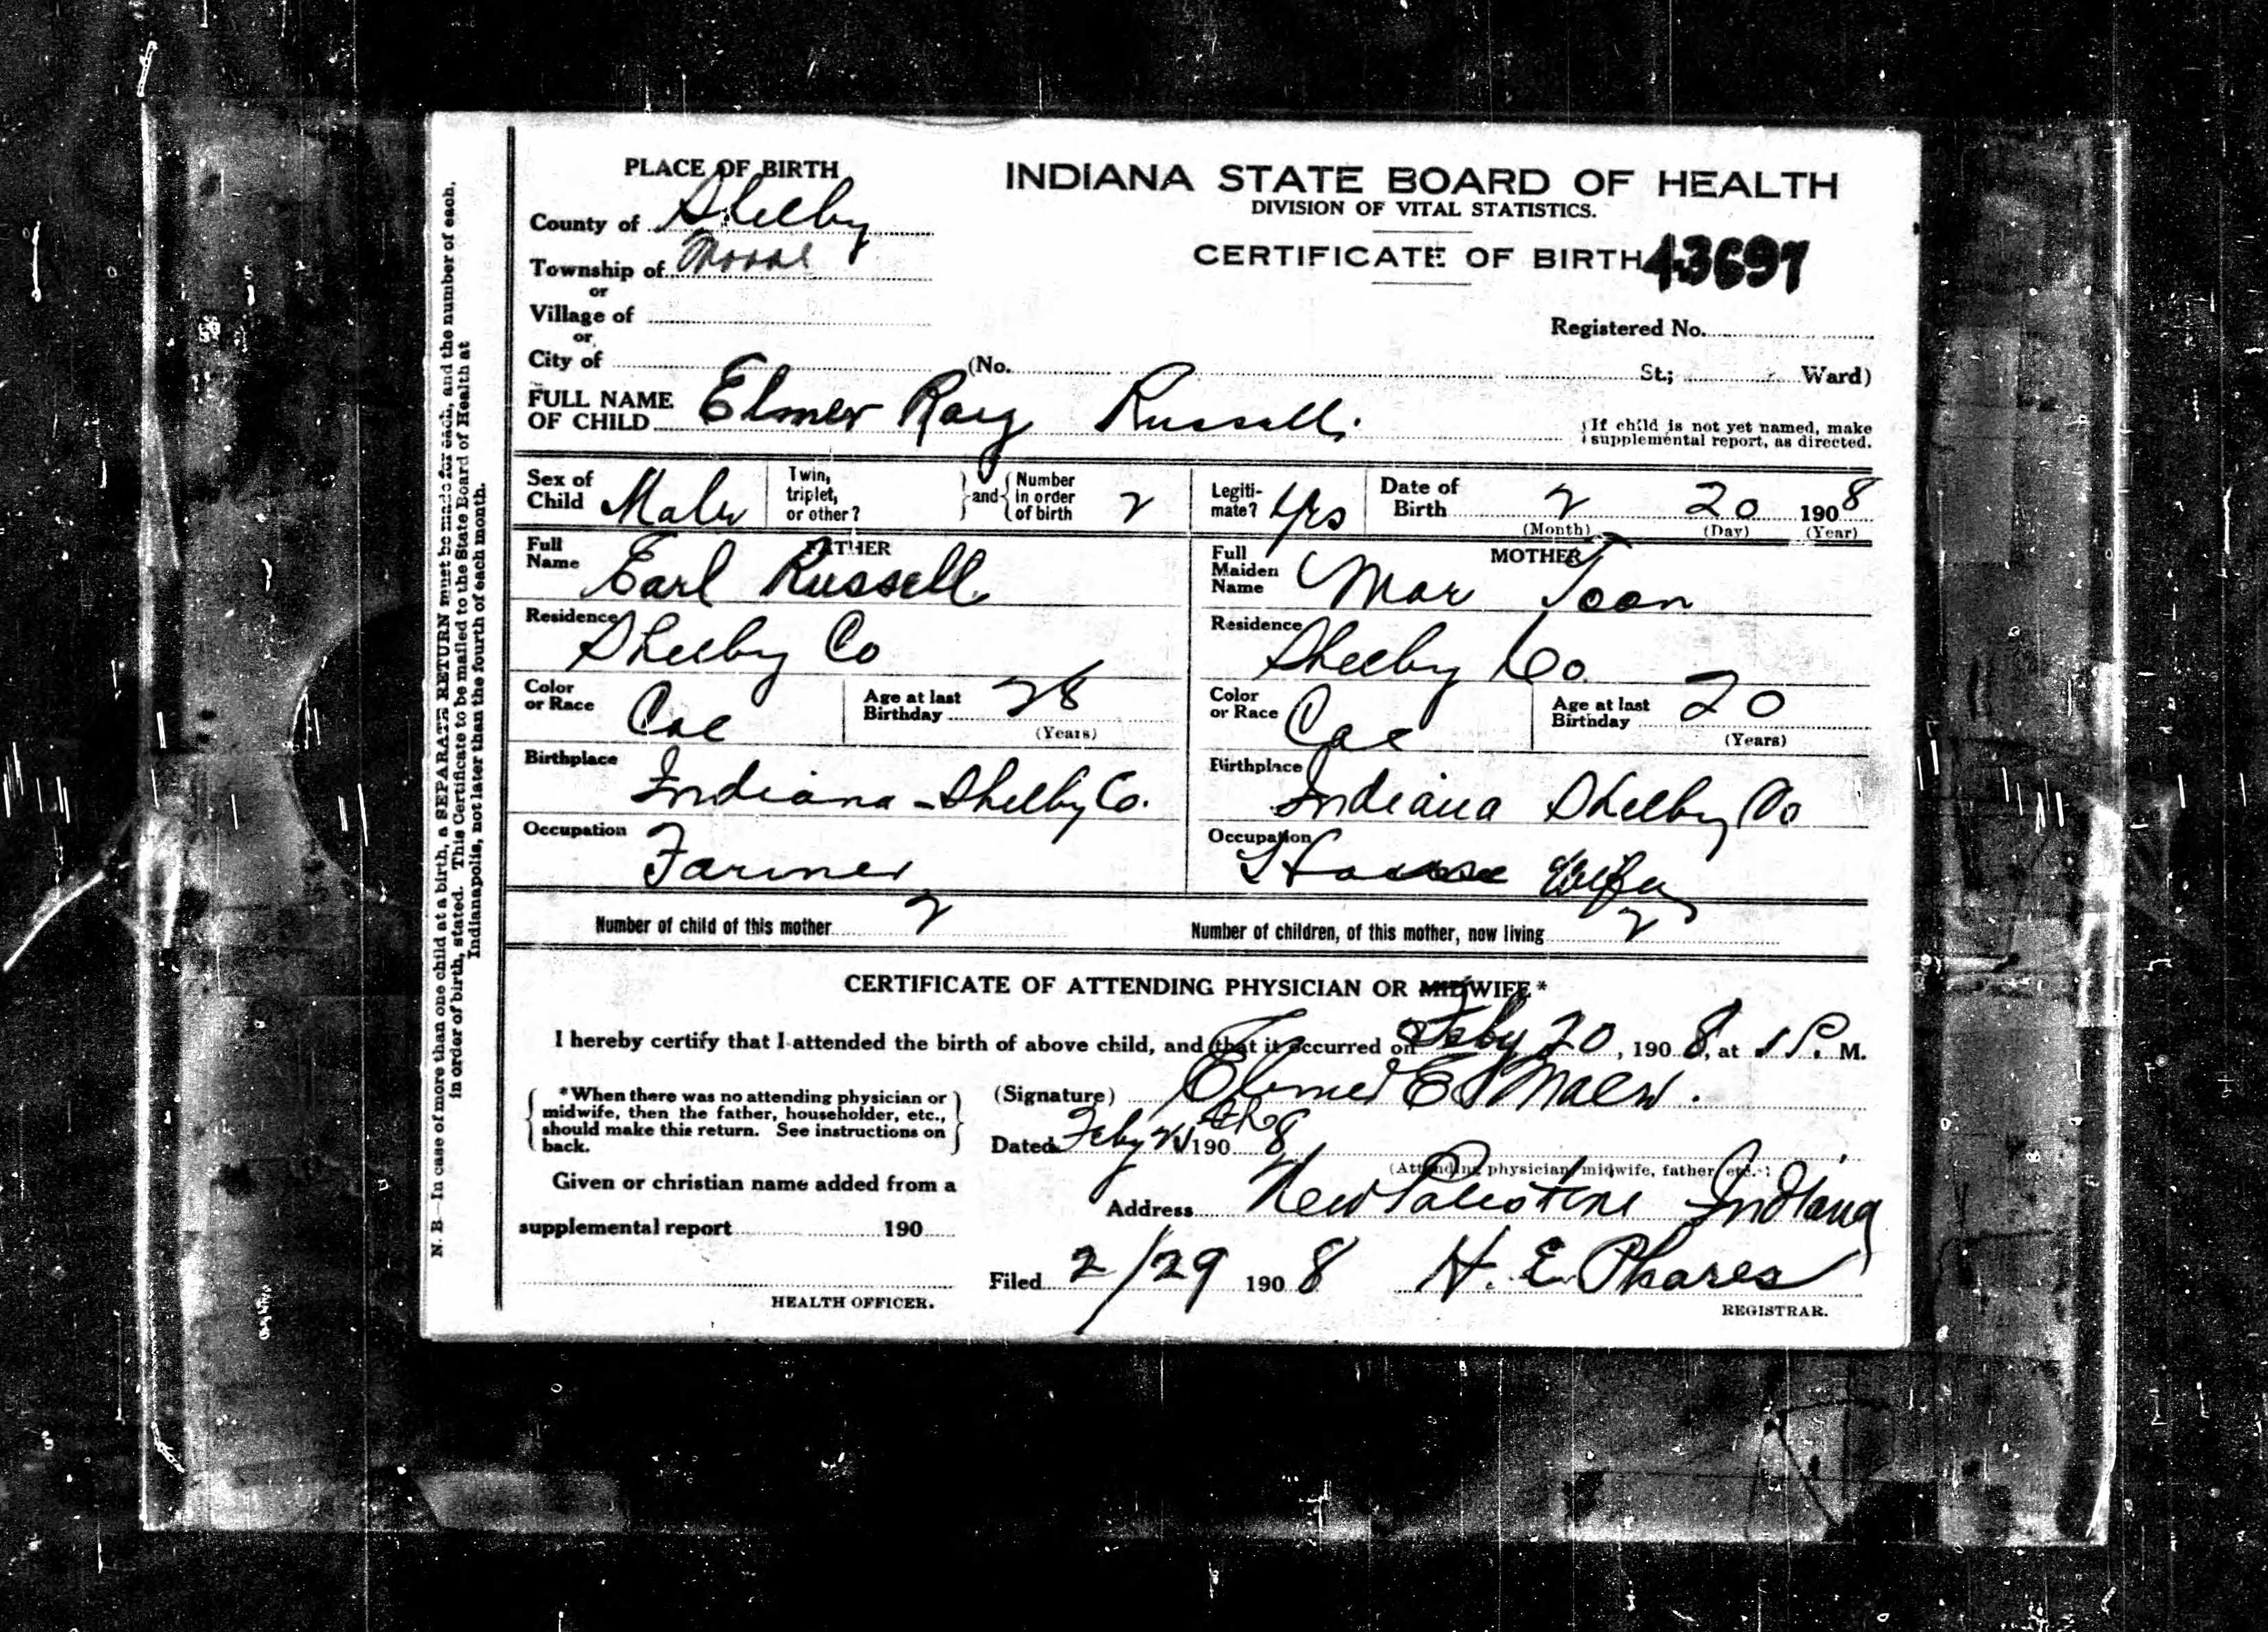 PLACE OF BIRTH
County of Shelby
Township of
or
Village of
or
City of (No. St.; Ward)
INDIANA STATE BOARD OF HEALTH
DIVISION OF VITAL STATISTICS.
CERTIFICATE OF BIRTH 43697
Registered No.
FULL NAME OF CHILD Elmer Ray Russell
If child is not yet named, make
supplemental report, as directed.
Sex of Child Male
Twin, triplet, or other?
and
Number in order of birth 2
Legiti-mate? Yes
Date of Birth 2 20 1908
(Month) (Day) (Year)
FATHER
Full Name Earl Russell
Residence Shelby Co
Color or Race Cac
Age at last Birthday 28
(Years)
Birthplace Indiana - Shelby Co.
Occupation Farmer
MOTHER
Full Maiden Name Mae Toon
Residence Shelby Co.
Color or Race Cac
Age at last Birthday 20
(Years)
Birthplace Indiana Shelby Co
Occupation House Wife
Number of child of this mother 2
Number of children, of this mother, now living 2
CERTIFICATE OF ATTENDING PHYSICIAN OR MIDWIFE*
I hereby certify that I attended the birth of above child, and that it occurred on Feby 20, 1908, at 1 P. M.
*When there was no attending physician or
midwife, then the father, householder, etc.,
should make this return. See instructions on
back.
(Signature) Elmer E
Dated Feby 1908
(Attending physician, midwife, father, etc.)
Given or christian name added from a
supplemental report 190
Address New Palestine Indiana
Filed 2/29 1908 H. E. Phares
HEALTH OFFICER.
REGISTRAR.
N. B.—In case of more than one child at a birth, a SEPARATE RETURN must be made for each, and the number of each,
in order of birth, stated. This Certificate to be mailed to the State Board of Health at
Indianapolis, not later than the fourth of each month.